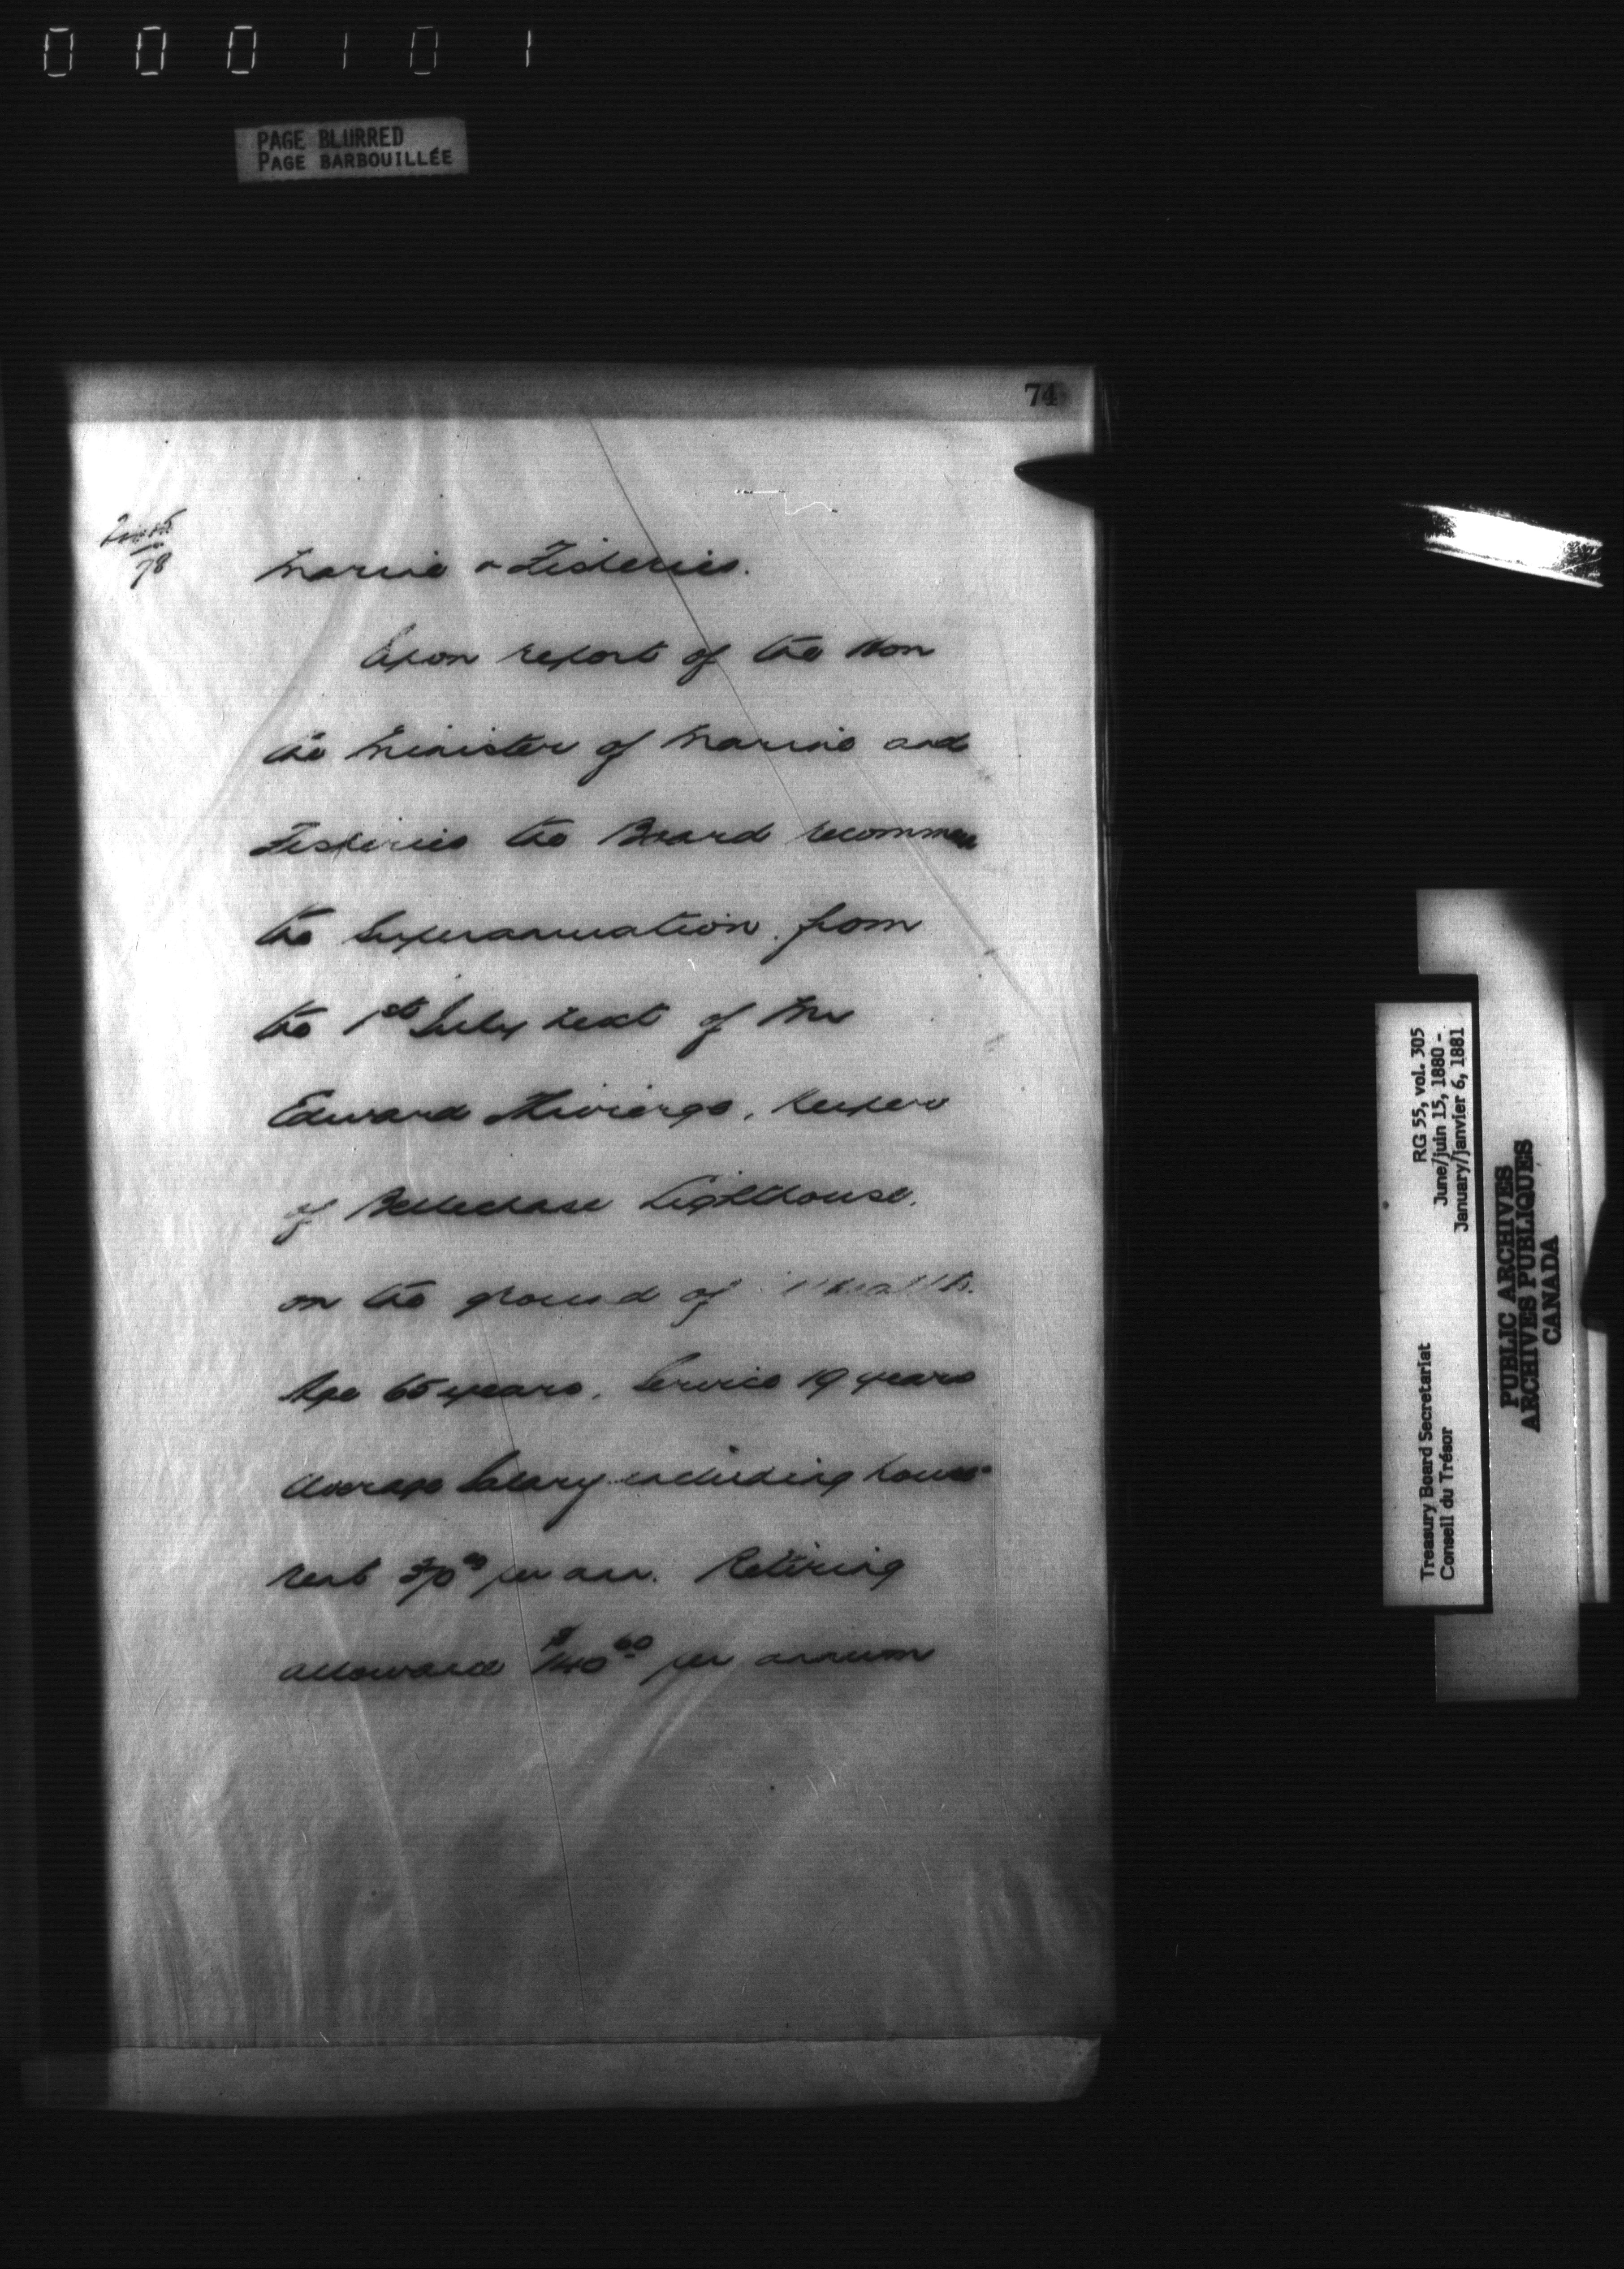 000101
PAGE BLURRED
PAGE BARBOUILLÉE
74
78
Marine & Fisheries.
Upon report of the Hon
the Minister of Marine and
Fisheries the Board recommen
the Superannuation from
the 1st July next of Mr
Edward Thivierge, keeper
of Bellechase Lighthouse,
on the ground of ill health.
Age 65 years, Service 19 years
Average Salary including house
rent 370⁰⁰ per ann. Retiring
allowance $140⁶⁰ per annum
RG 55, vol. 305
June/juin 15, 1880 -
January/janvier 6, 1881
Treasury Board Secretariat
Conseil du Trésor
PUBLIC ARCHIVES
ARCHIVES PUBLIQUES
CANADA